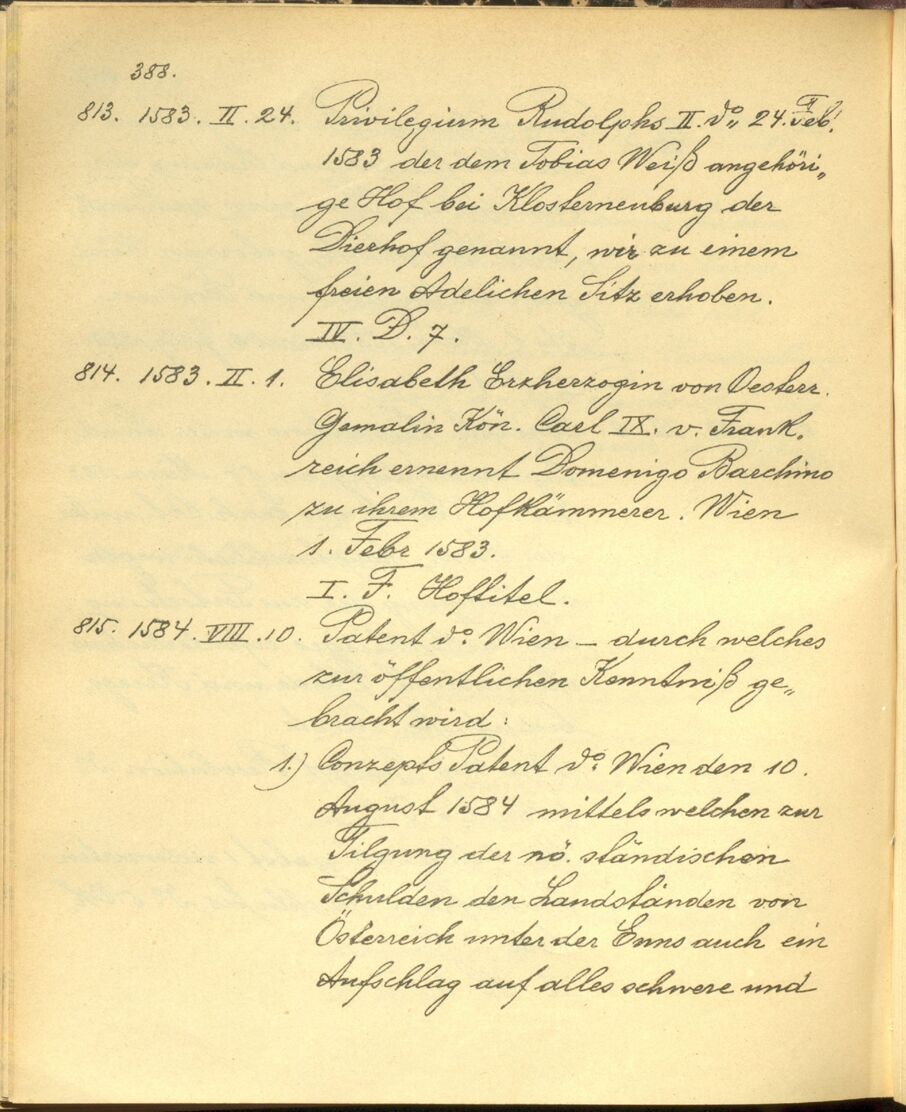 388.
813. 1583. II. 24. Privilegium Rudolphs II. do„ 24. Feb.
1583 der dem Tobias Weiß angehöri„
ge Hof bei Klosterneuburg der
Dierhof genannt, wir zu einem
freien Adelichen Sitz erhoben.
IV. D. 7.
814. 1583. II. 1. Elisabeth Erzherzogin von Oesterr.
Gemalin Kön. Carl IX. v. Frank„
reich ernennt Domenigo Barchino
zu ihrem Hofkämmerer. Wien
1. Febr 1583.
I. F. Hoftitel.
815. 1584. VIII. 10. Patent do. Wien – durch welches
zur öffentlichen Kenntniß ge„
bracht wird:
1.) Conzepts Patent do. Wien den 10.
August 1584 mittels welchen zur
Tilgung der nö. ständischen
Schulden den Landständen von
Österreich unter der Enns auch ein
Aufschlag auf alles schwere und